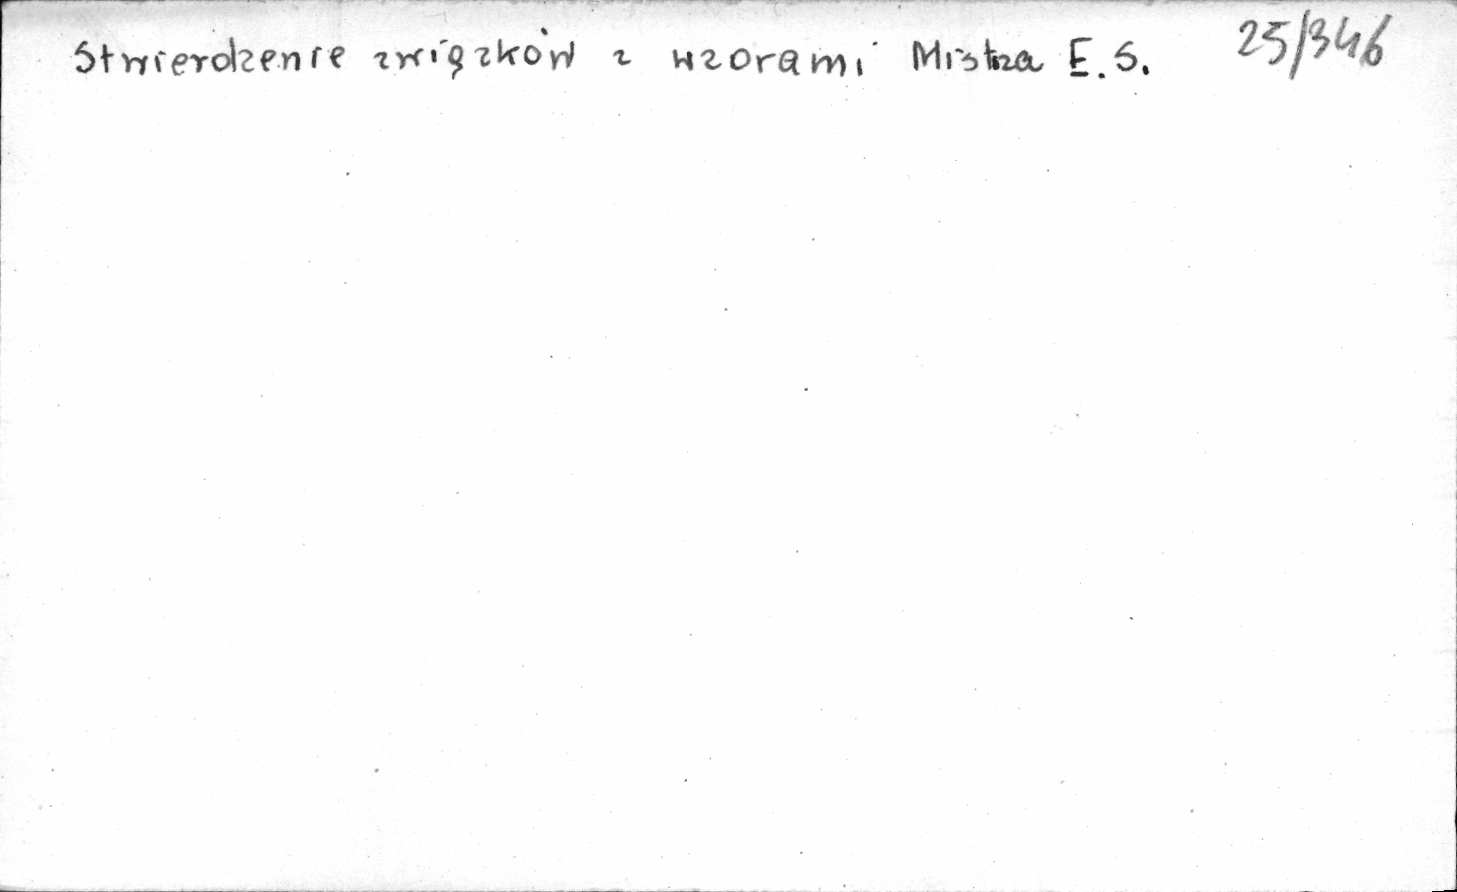 Stwierdzenie związków z wzorami Mistrza E.S. 25/346